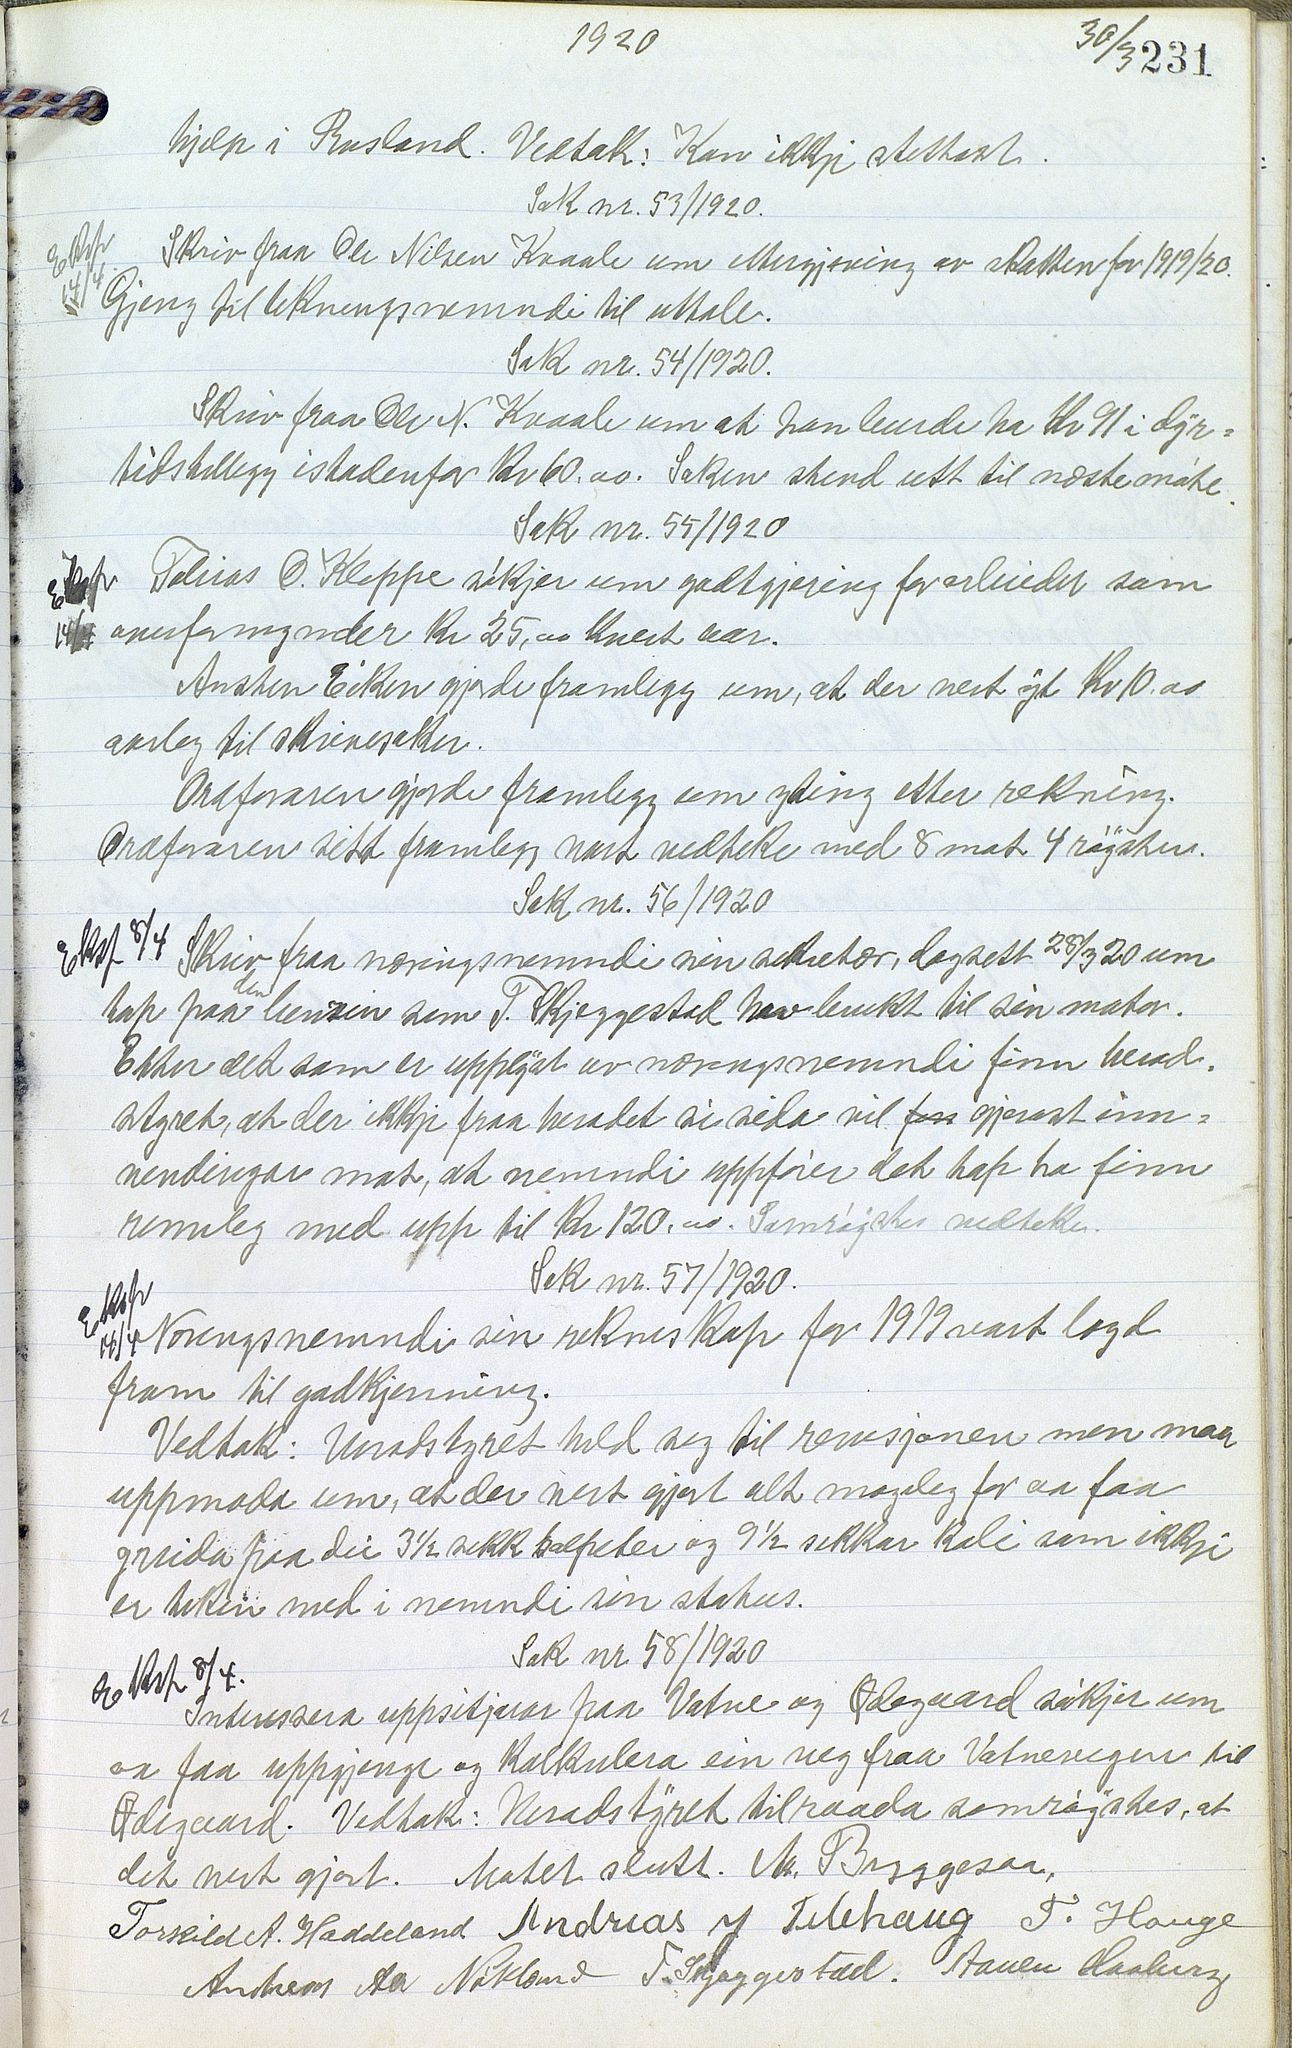 1920
30/3 231
hjelp i Rusland. Vedtak: Kan ikkje stettast.
Sak nr. 53/1920.
Eksp 14/4
Skriv fraa Ole Nilsen Kvaale um ettergjeving av skatten for 1919/20.
Gjeng til likningsnemndi til uttale.
Sak nr. 54/1920.
Skriv fraa Ole N. Kvaale um at han burde ha Kr 91 i dyr-
tidstillegg istadenfor Kr 60.00. Saken stend utt til næste møte.
Sak nr. 55/1920
Eksp 14/4
Tobias O. Kleppe søkjer um godtgjering for arbeidet som
overformynder Kr 25,00 kvert aar.
Austen Eiken gjorde framlegg um, at der vert yt Kr 10.00
aarleg til skrivesaker.
Ordføraren gjorde framlegg um yding etter rekning.
Ordføraren sitt framlegg vart vedteke med 8 mot 4 røyster.
Sak nr. 56/1920
Eksp 8/4 Skriv fraa næringsnemndi sin sekretær, dagsett 28/3 20 um
tap paa den bensin som T. Skjeggestad hev brukt til sin motor.
Etter det som er upplyst av næringsnemndi finn herad-
styret, at der ikkje fraa heradet si sida vil gjerast inn-
vendingar mot, at nemndi uppfører det tap ho finn
rimeleg med upp til Kr 120.00. Samrøystes vedteke.
Sak nr. 57/1920.
Eksp 14/4
Næringsnemndi sin rekneskap for 1919 vart lagd
fram til godkjenning.
Vedtak: Heradstyret held seg til revisjonen men maa
uppmoda um, at der vert gjort alt mogleg for aa faa
greida paa dei 3 1/2 sekk salpeter og 9 1/2 sekkar kali som ikkje
er teken med i nemndi sin status.
Sak nr 58/1920
Eksp 8/4.
Interessera uppsitjarar fraa Vatne og Ødegaard søkjer um
aa faa uppgjenge og kalkulera ein veg fraa Vatnevegen til
Ødegaard. Vedtak: Heradstyret tilraada samrøystes, at
det vert gjort. Møtet slutt. M. Bryggesaa,
Torkild A. Haddeland Andreas Telehaug T. Hauge
Andreas Aa Nøkland T. Skjeggestad. Aanen Haaberg